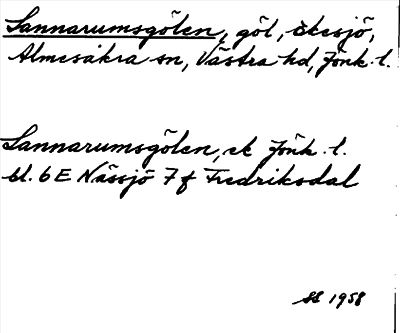 Sannarumsgölen, göl, Ekesjö,
Almesåkra sn, Västra hd, Jönk. l.
Sannarumsgölen, ek Jönk. l.
bl. 6 E Nässjö 7 f Fredriksdal
1958